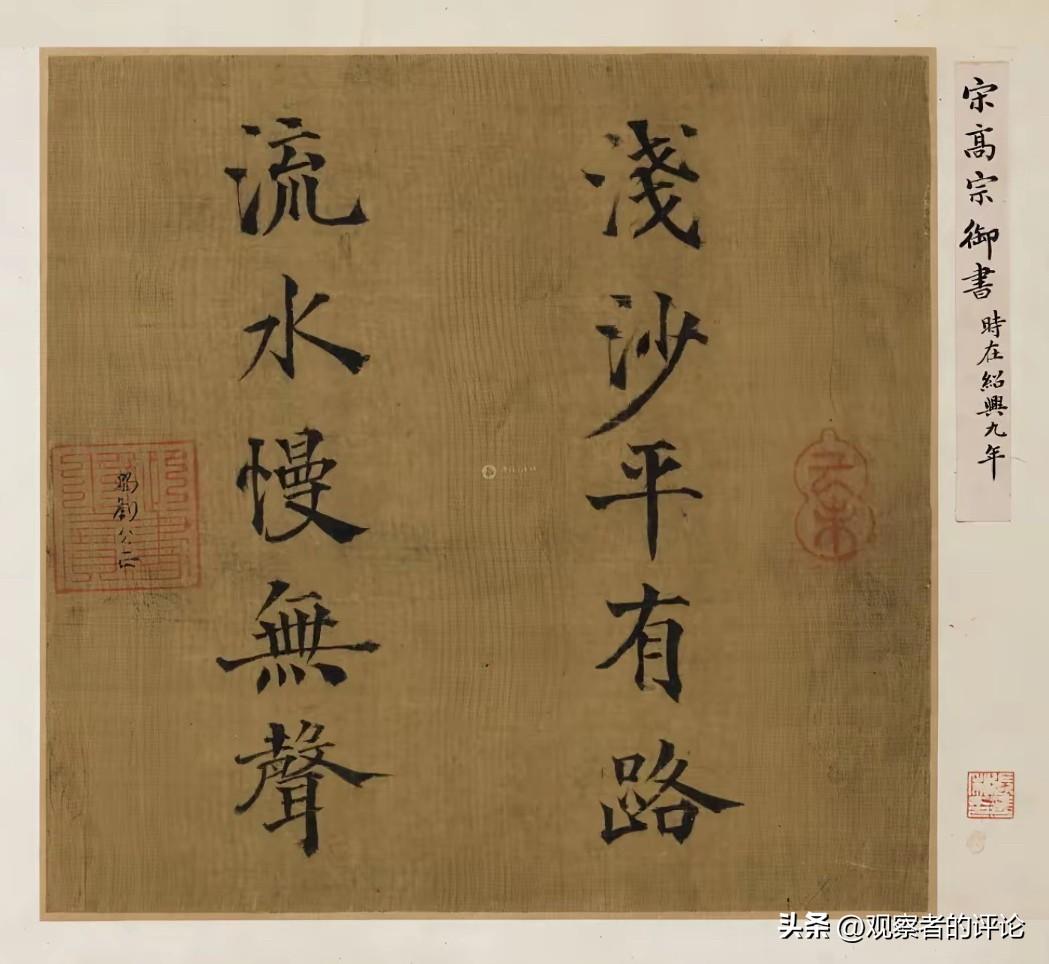 宋高宗御書 時在紹興九年
淺沙平有路
流水慢無聲
賜劉公正
头条 @观察者的评论